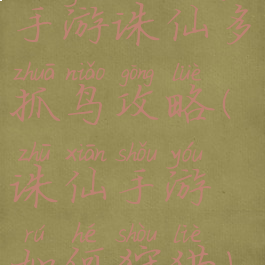 手游诛仙多
zhuā niǎo gōng lüè
抓鸟攻略(
zhū xiān shǒu yóu
诛仙手游
rú hé shòu liè
如何狩猎)